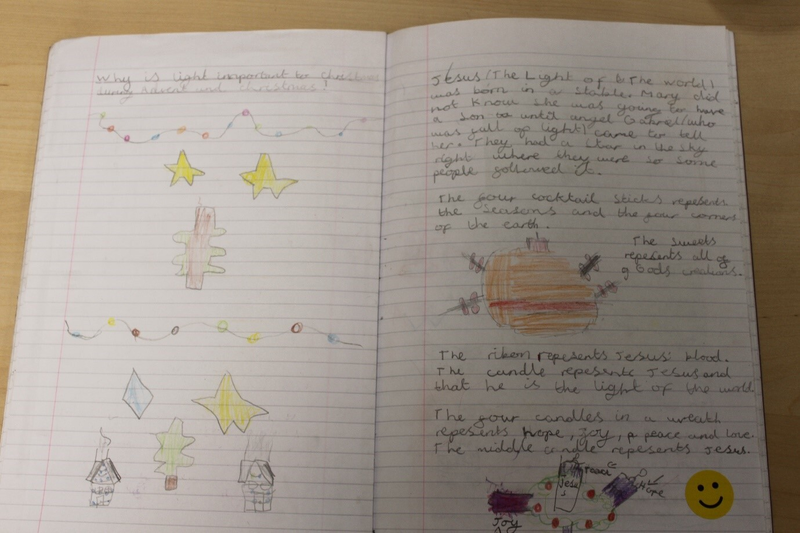 Why is light important to christians
during Advent and christmas?
Jesus (The Light of the world)
was born in a stable. Mary did
not know she was going to have
a son until angel Gabriel (who
was full of light) came to tell
her. They had a star in the sky
right where they were so some
people followed it.
The four cocktail sticks repesents
the seasons and the four corners
of the earth.
The sweets
repesents all of
gods creations.
The ribon repesents Jesus' blood.
The candle repesents Jesus and
that he is the light of the world.
The four candles in a wreath
repesents hope, Joy, peace and love.
The middle candle repesents Jesus.
Peace
Jesus
Hope
Joy